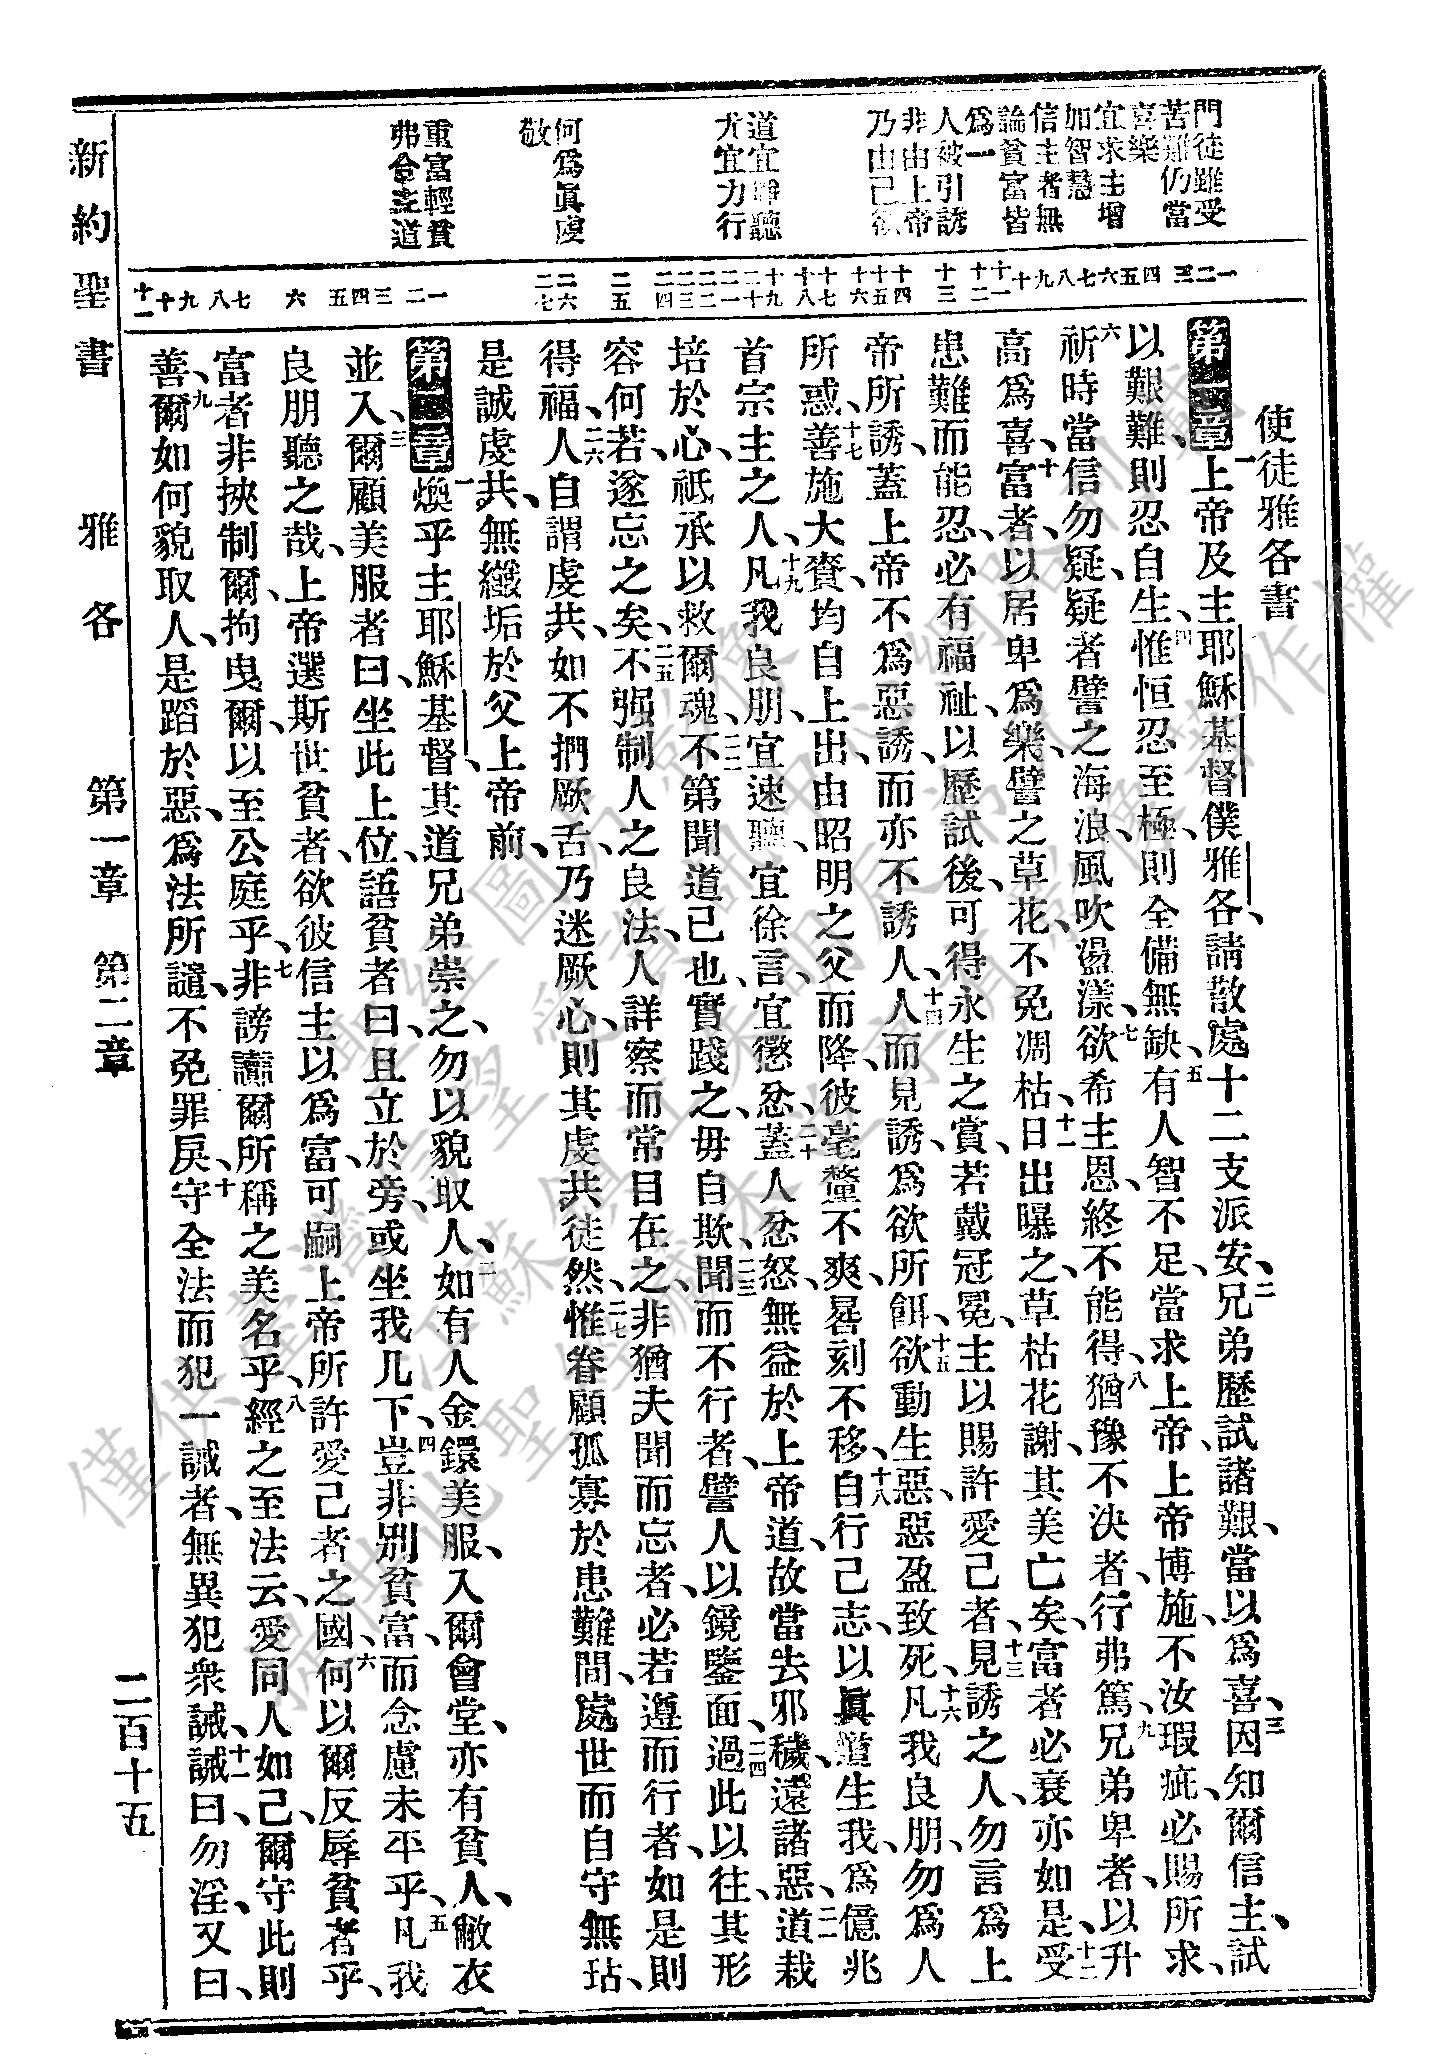 門徒雖受
苦難仍當
喜樂
宜求主增
加智慧
信主者無
論貧富皆
爲一
人被引誘
非由上帝
乃由己欲
道宜聽
尤宜力行
何爲眞虔
敬
重富輕貧
弗合主道
一
二
三
四
五
六
七
八
九
十
十一
十二
十三
十四
十五
十六
十七
十八
十九
二十
二一
二二
二三
二四
二五
二六
二七
一
二
三
四
五
六
七
八
九
十
十一
使徒雅各書
第一章一上帝及主耶穌基督僕雅各、請散處十二支派安、二兄弟歷試諸艱、當以爲喜、三因知爾信主、試
以艱難、則忍自生、四惟恒忍至極、則全備無缺、五有人智不足、當求上帝、上帝博施、不汝瑕疵、必賜所求、
六祈時當信勿疑、疑者譬之海浪、風吹盪漾、七欲希主恩、終不能得、八猶豫不決者、行弗篤、九兄弟卑者、以升
高爲喜、十富者、以居卑爲樂、譬之草花、不免凋枯、十一日出曝之、草枯花謝、其美亡矣、富者必衰亦如是、十二受
患難而能忍、必有福祉、以歷試後、可得永生之賞、若戴冠冕、主以賜許愛己者、十三見誘之人、勿言爲上
帝所誘、蓋上帝不爲惡誘、而亦不誘人、十四人而見誘、爲欲所餌、十五欲動生惡、惡盈致死、十六凡我良朋、勿爲人
所惑、十七善施大賚、均自上出、由昭明之父而降、彼毫釐不爽、晷刻不移、十八自行己志、以眞道生我、爲億兆
首宗主之人、十九凡我良朋、宜速聽、宜徐言、宜懲忿、二十蓋人忿怒、無益於上帝道、二一故當去邪穢、遠諸惡、道栽
培於心、祗承以救爾魂、二二不第聞道已也、實踐之、毋自欺、二三聞而不行者、譬人以鏡鑒面、二四過此以往、其形
容何若、遂忘之矣、二五不强制人之良法、人詳察而常目在之、非猶夫聞而忘者、必若遵而行者、如是則
得福、二六人自謂虔共、如不捫厥舌、乃迷厥心、則其虔共徒然、二七惟眷顧孤寡於患難間、處世而自守無玷、
是誠虔共、無纖垢於父上帝前、
第二章一煥乎主耶穌基督、其道兄弟崇之、勿以貌取人、二如有人金鐶美服、入爾會堂、亦有貧人、敝衣
並入、三爾顧美服者曰、坐此上位、語貧者曰、且立於旁、或坐我几下、四豈非別貧富、而念慮未平乎、五凡我
良朋聽之哉、上帝選斯世貧者、欲彼信主以爲富、可嗣上帝所許愛己者之國、六何以爾反辱貧者乎、
富者非挾制爾、拘曳爾、以至公庭乎、七非謗讟爾所稱之美名乎、八經之至法云、愛同人如己、爾守此則
善、九爾如何貌取人、是蹈於惡、爲法所譴、不免罪戾、十守全法而犯一誡者、無異犯衆誡、十一誡曰、勿淫、又曰、
新約聖書
雅各
第一章 第二章
二百十五
僅供臺灣聖經圖片授權